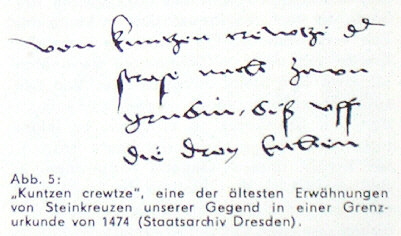 von kuntzen crewtze
strase nach
gruben, biß uff
die drey
Abb. 5:
„Kuntzen crewtze“, eine der ältesten Erwähnungen
von Steinkreuzen unserer Gegend in einer Grenz-
urkunde von 1474 (Staatsarchiv Dresden).